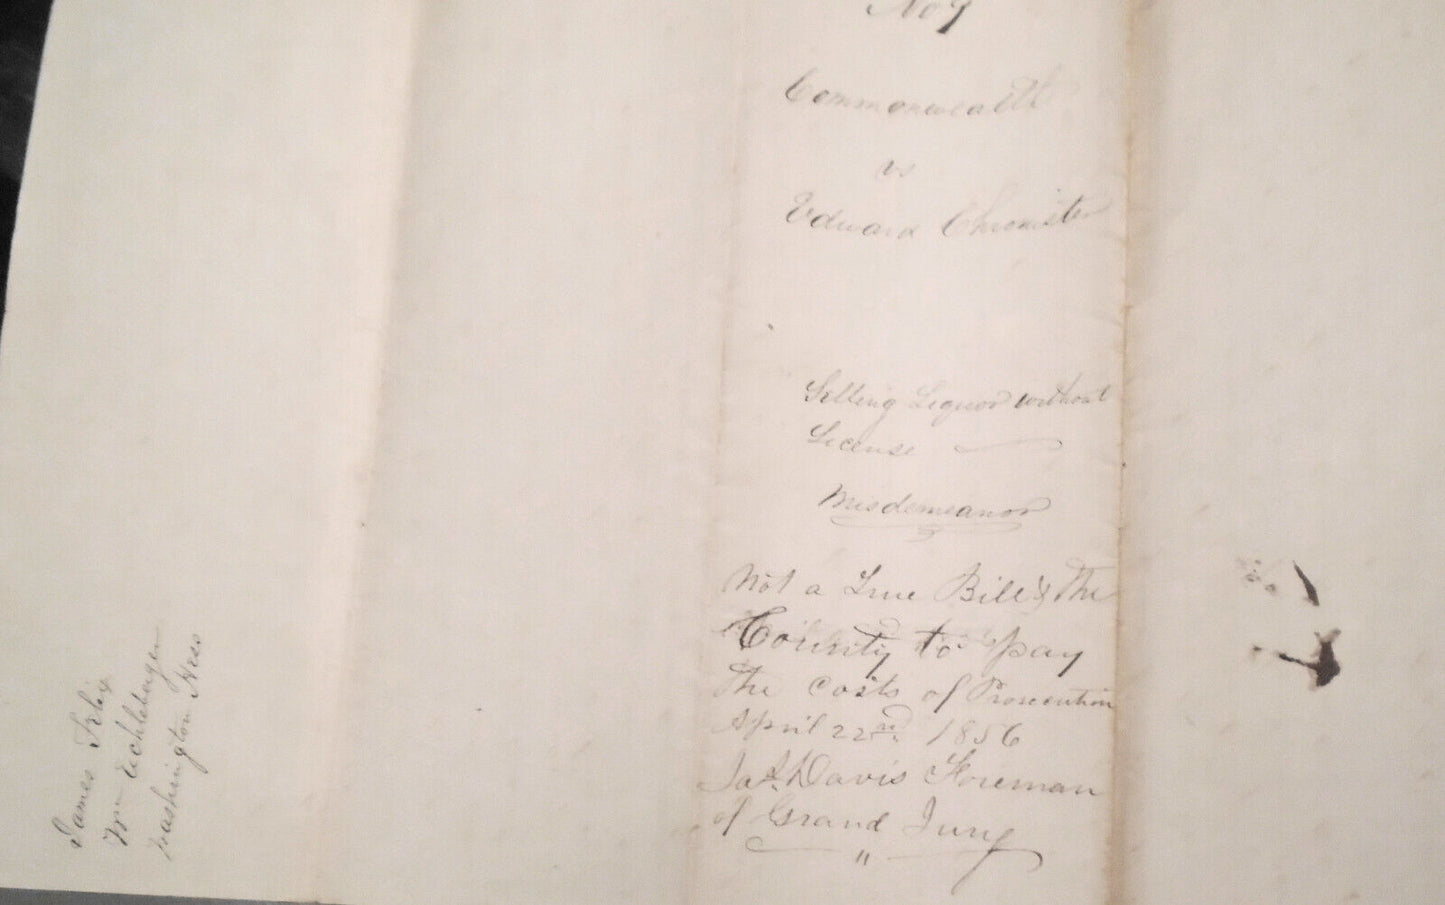 No 9
Commonwealth
vs
Edward Chronister
Selling Liquor without
License
Misdemeanor
Not a True Bill & the
County to pay
the costs of Prosecution
April 22nd 1856
Jas. Davis Foreman
of Grand Jury
"
James
Wm Eichleberger
Washington Hess